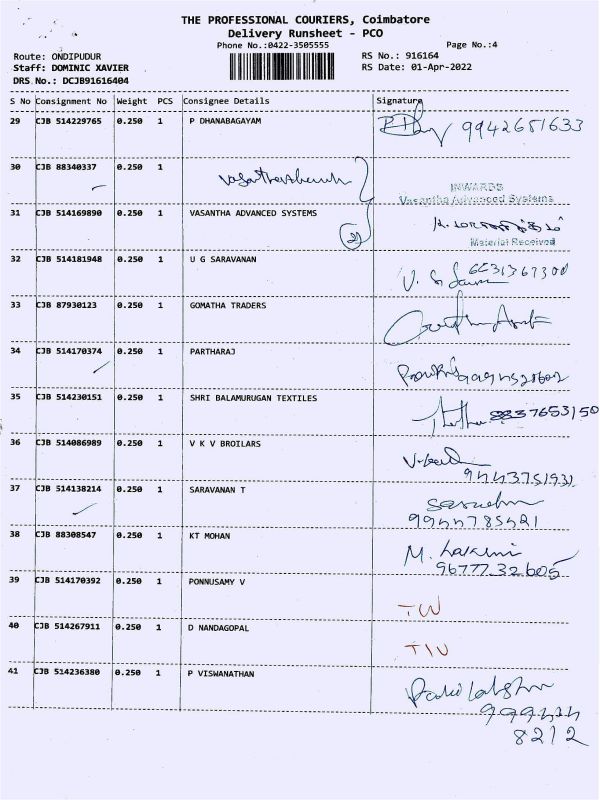 THE PROFESSIONAL COURIERS, Coimbatore
Delivery Runsheet - PCO
Phone No.:0422-3505555 Page No.:4
Route: ONDIPUDUR RS No.: 916164
Staff: DOMINIC XAVIER RS Date: 01-Apr-2022
DRS No.: DCJB91616404
S No Consignment No Weight PCS Consignee Details Signature
29 CJB 514229765 0.250 1 P DHANABAGAYAM
9942651633
30 CJB 88340337 0.250 1
INWARDS
Vasantha Advanced Systems
31 CJB 514169890 0.250 1 VASANTHA ADVANCED SYSTEMS
2
Material Received
32 CJB 514181948 0.250 1 U G SARAVANAN
33 CJB 87930123 0.250 1 GOMATHA TRADERS
34 CJB 514170374 0.250 1 PARTHARAJ
35 CJB 514230151 0.250 1 SHRI BALAMURUGAN TEXTILES
36 CJB 514086989 0.250 1 V K V BROILARS
9443751931
37 CJB 514138214 0.250 1 SARAVANAN T
9944785421
38 CJB 88308547 0.250 1 KT MOHAN
M.
96777 32605
39 CJB 514170392 0.250 1 PONNUSAMY V
40 CJB 514267911 0.250 1 D NANDAGOPAL
41 CJB 514236380 0.250 1 P VISWANATHAN
8212